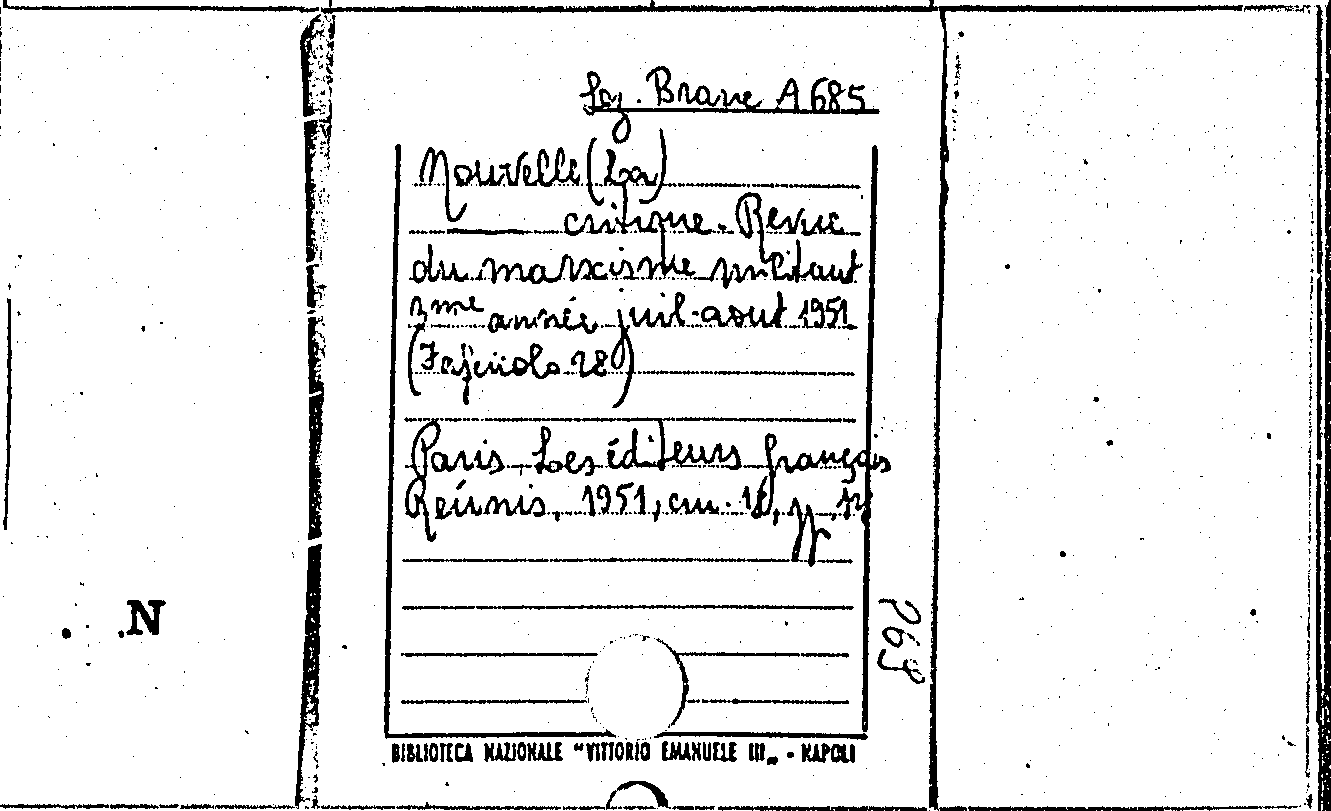 Leg. Brane A 685
Nouvelle (La)
critique. Revue
du marxisme militant
3me année juil-aout 1951
(Fascicolo 28)
Paris, Les éditeurs français
Reúnis, 1951, cm. 18, pp.
N
BIBLIOTECA NAZIONALE "VITTORIO EMANUELE III„ - NAPOLI